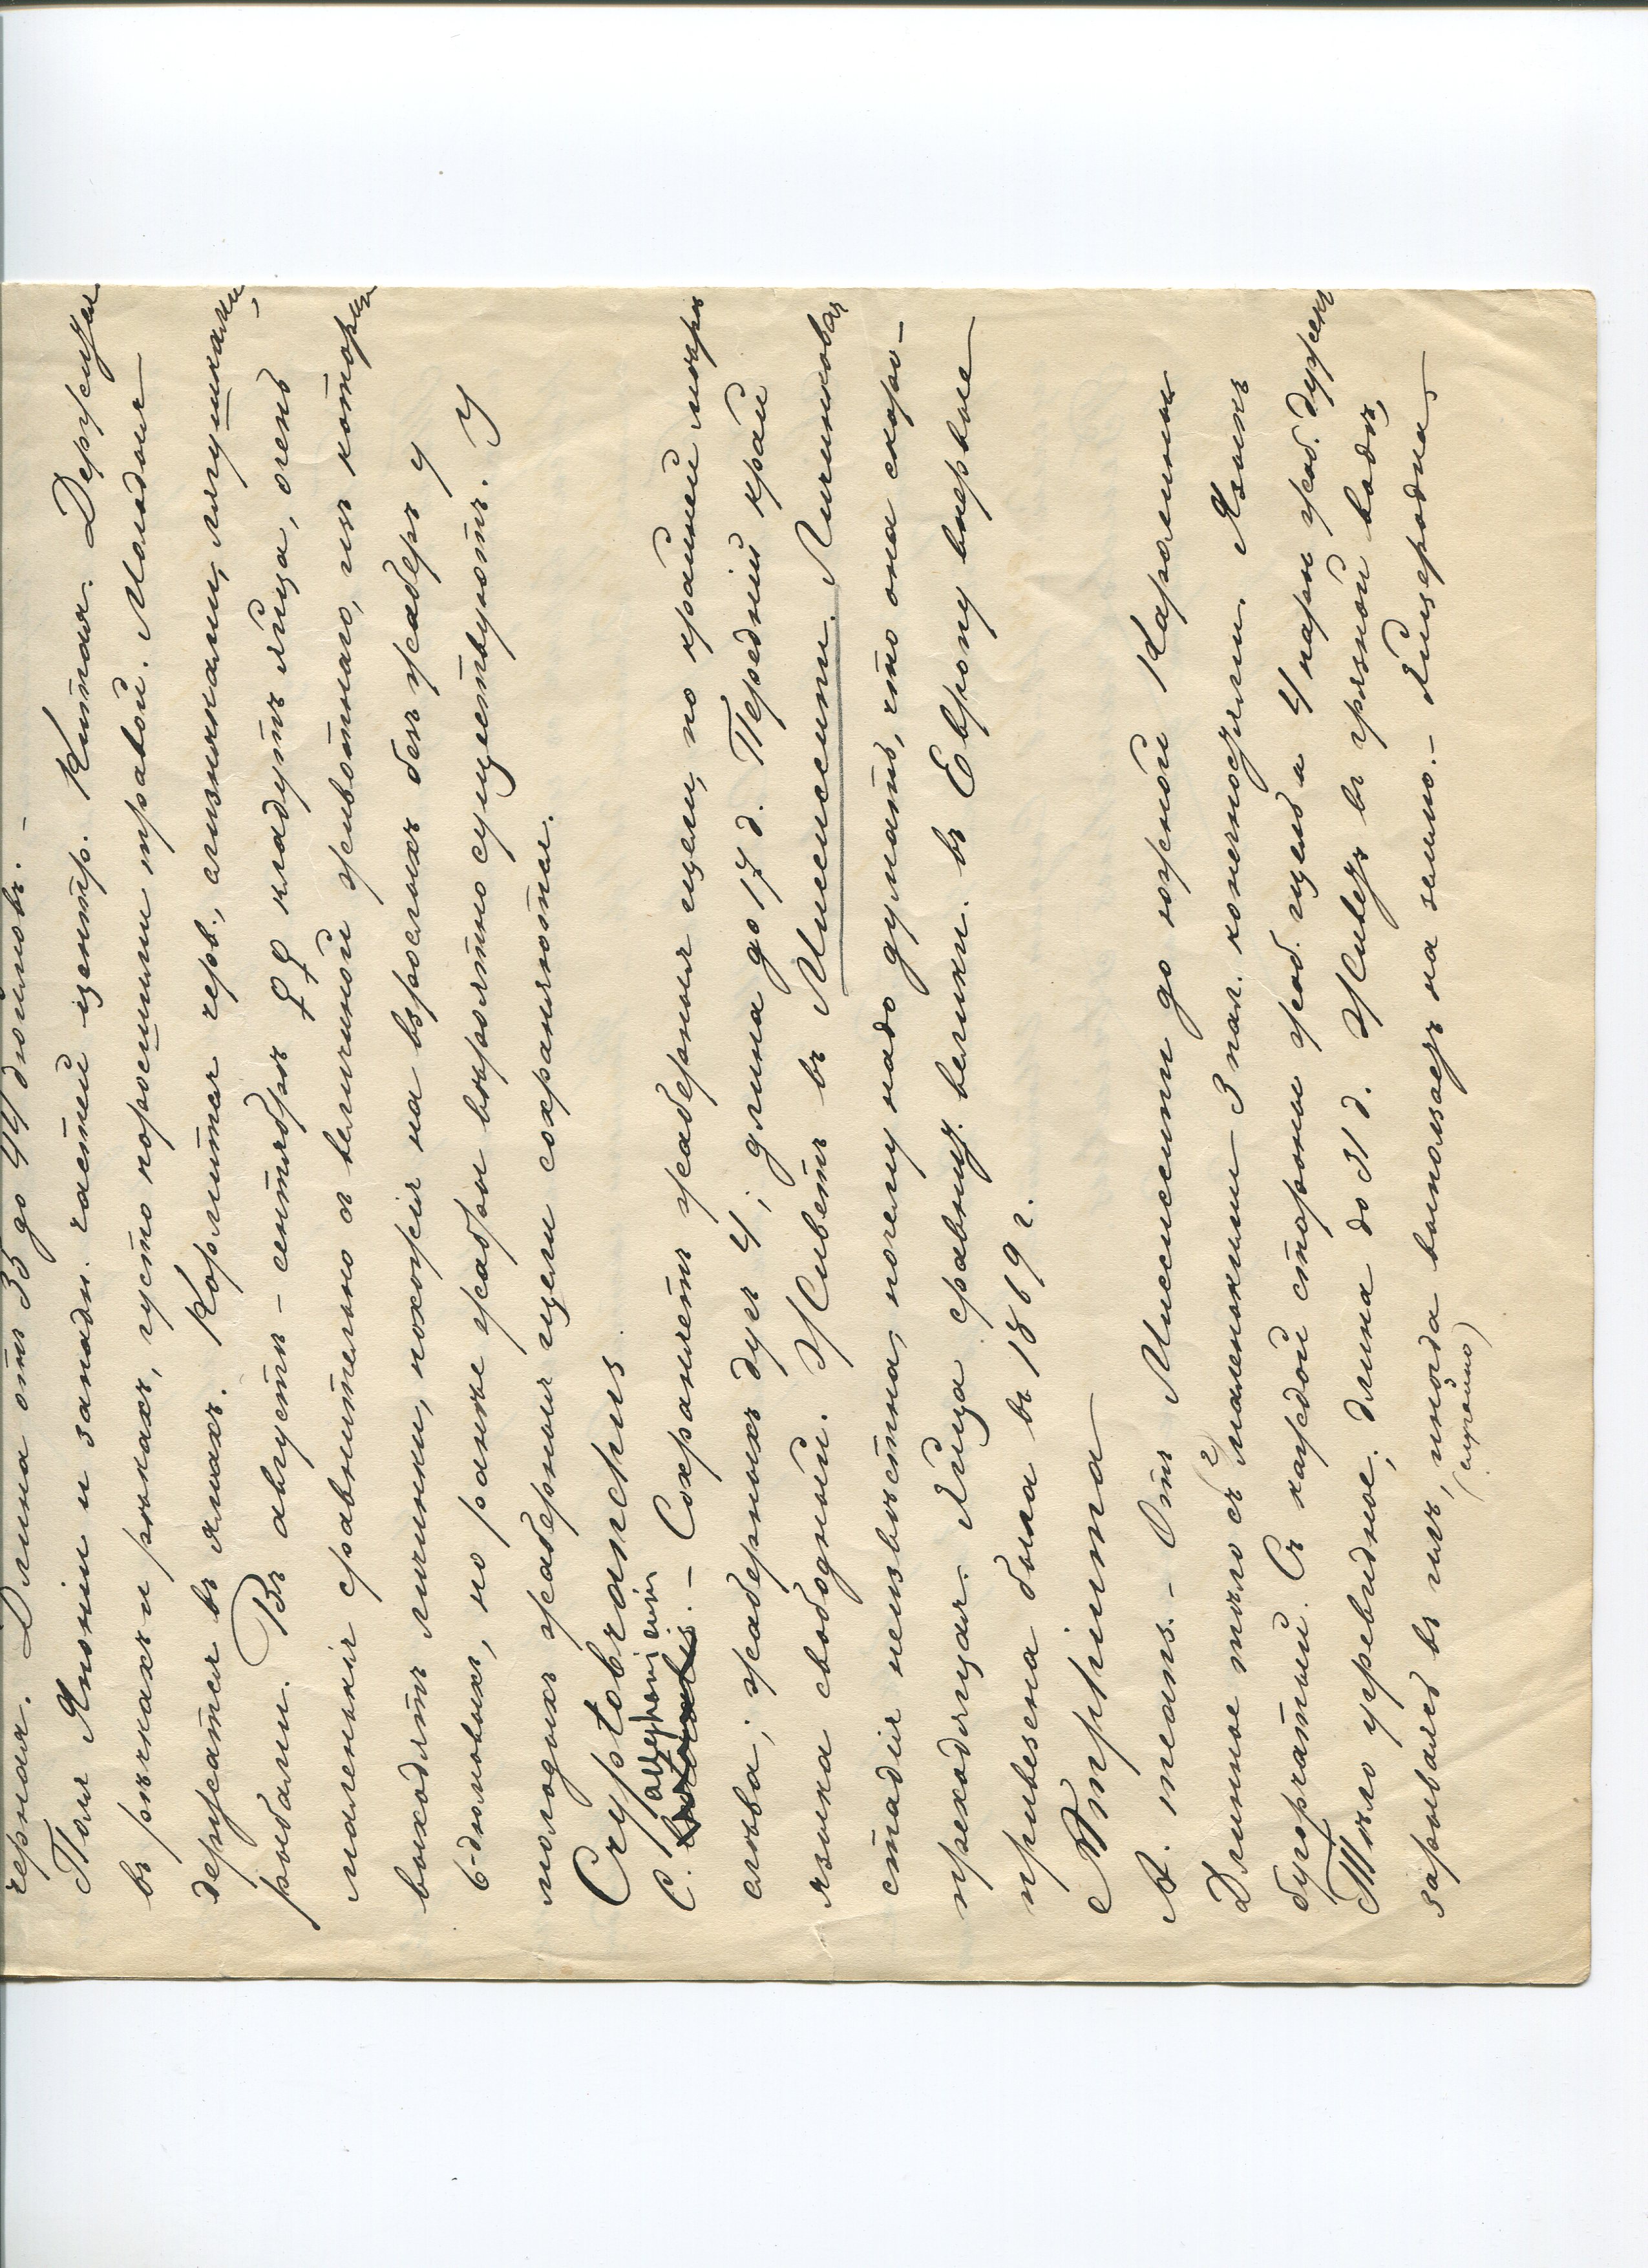 черная. Длина отъ 35 до 44 дюймовъ. –
Поля Японіи и западн. частей центр. Китая. Держится
въ рѣчкахъ и рѣкахъ, густо поросшими травой. Молодыя
держатся въ ямахъ. Кормится черв., слизняками, лягушками,
рыбами. Въ августѣ – сентябрѣ ♀♀ кладутъ яйца, очень
маленькія сравнительно съ величиной животнаго, изъ которы
выходятъ личинки, похожія на взрослыхъ безъ жаберъ у
6-дюймовыхъ, но ранѣе жабры вѣроятно существуютъ. У
молодыхъ жаберныя щели сохраняются.
Cryptobranchus
C. alleghaniensis. – Сохраняетъ жаберныя щели, по крайней мѣрѣ
слѣва; жаберныхъ дугъ 4; длина до 17 д. Передній край
языка свободный. Живетъ въ Миссисипи. Личинковая
стадія неизвѣстна, почему надо думать, что она скоро–
преходящая. Яйца сравнит. велики. въ Европу впервые
привезена была въ 1869 г.
Amphiuma
A. means. – Отъ Миссисипи до южной Каролины
Длинное тѣло съ 2 маленькими 3 пал. конечностями. Языкъ
бугорчатый. Съ каждой стороны жаб. щель и 4 пары жаб. дужекъ
Тѣло угревидное; длина до 31 д. Живетъ въ грязной водѣ,
зарываясь въ илъ, иногда выползаетъ на землю. – Яйцеродна